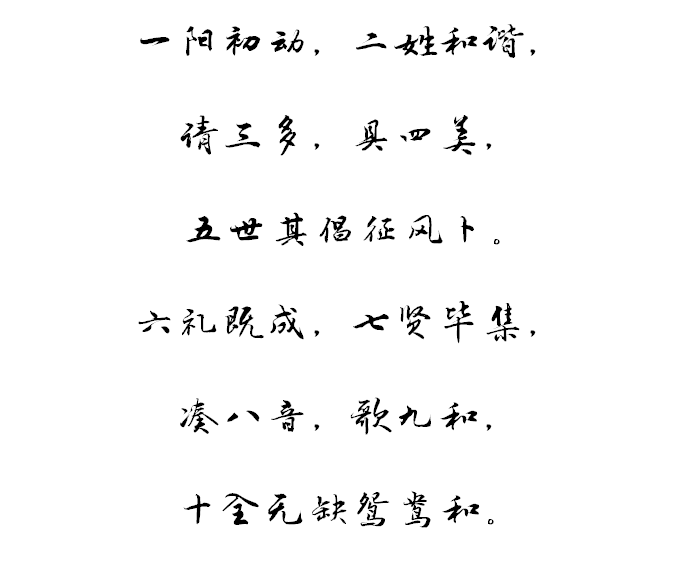 一阳初动，二姓和谐，
请三多，具四美，
五世其倡征凤卜。
六礼既成，七贤毕集，
凑八音，歌九和，
十全无缺鸳鸯和。